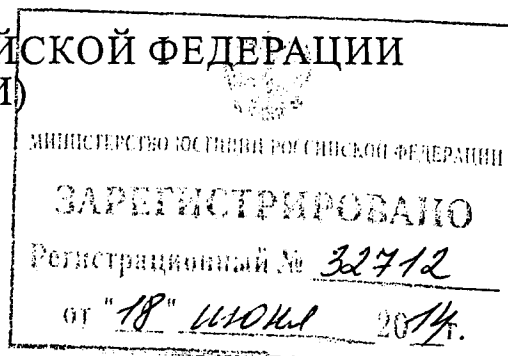 ЙСКОЙ ФЕДЕРАЦИИ
И)
МИНИСТЕРСТВО ЮСТИЦИИ РОССИЙСКОЙ ФЕДЕРАЦИИ
ЗАРЕГИСТРИРОВАНО
Регистрационный № 32712
от "18" июня 2014г.